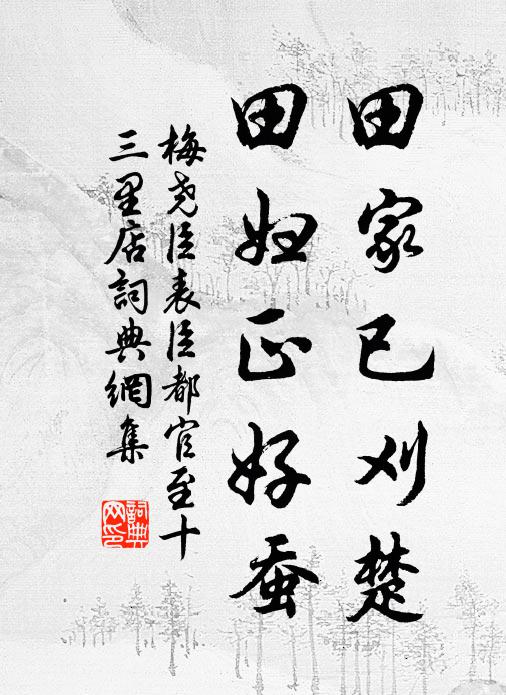 田家已刈楚
田妇正好蚕
梅尧臣表臣都官至十
三里店詞典網集
詞典
网印